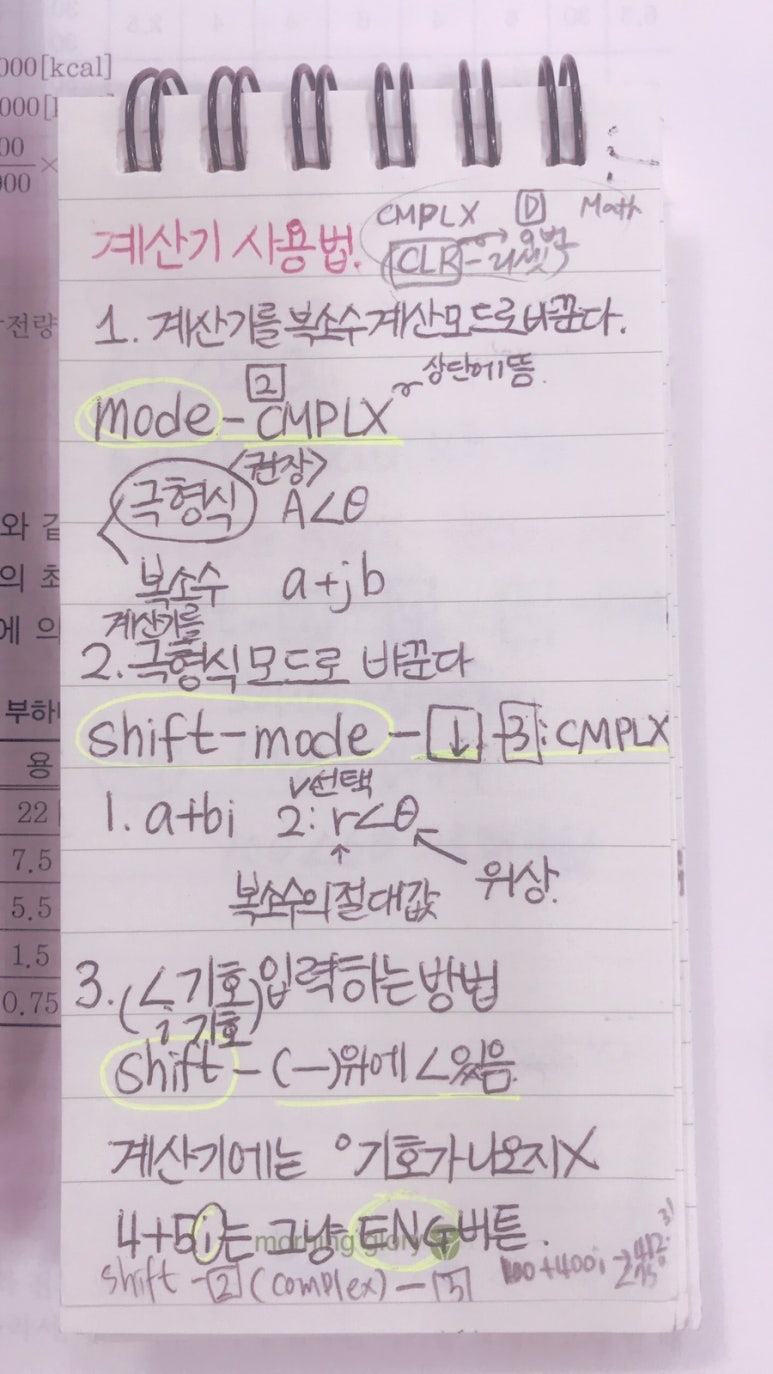 000[kcal]
000[
00
000 ×
전략
와 같
의 초
에 의
부하
용
22
7.5
5.5
1.5
0.75
CMPLX D Math
계산기 사용법. CLR - 리셋
1. 계산기를 복소수 계산모드로 바꾼다.
2 상단에 뜸.
mode - CMPLX
<권장>
극형식 A∠θ
복소수 a+jb
계산기를
2. 극형식 모드로 바꾼다
shift-mode - ↓ - 3: CMPLX
∨선택
1. a+bi 2: r∠θ
↑
복소수의 절대값 위상.
3. (∠기호) 입력하는 방법
i 기호
shift - (-)위에 ∠있음.
계산기에는 °기호가 나오지X
4+5i는 그냥 ENG 버튼.
morning glory
shift - 2 (complex) - 3 100+400i →